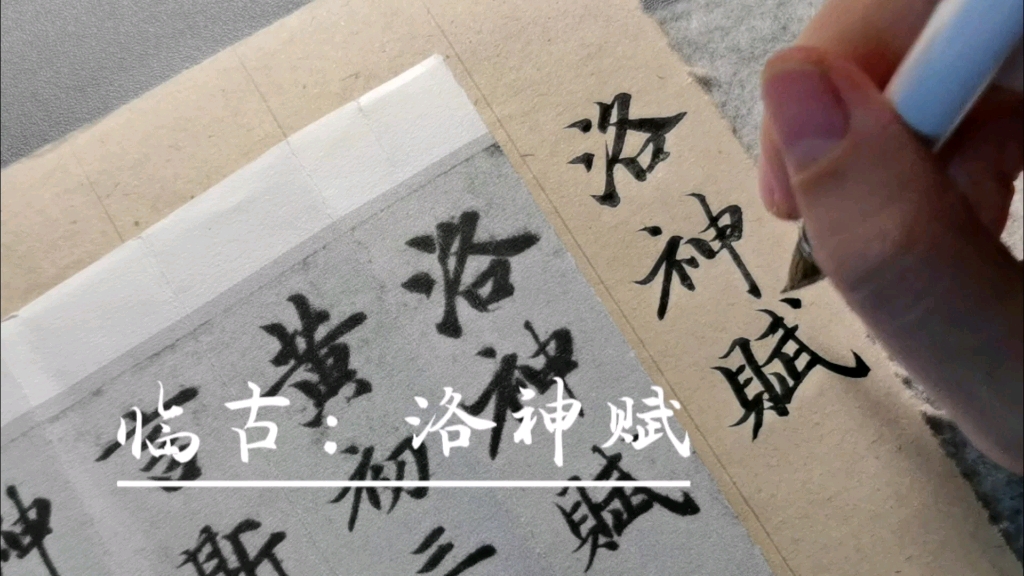 洛神賦
洛神賦
黄初三
斯
神
临古：洛神赋